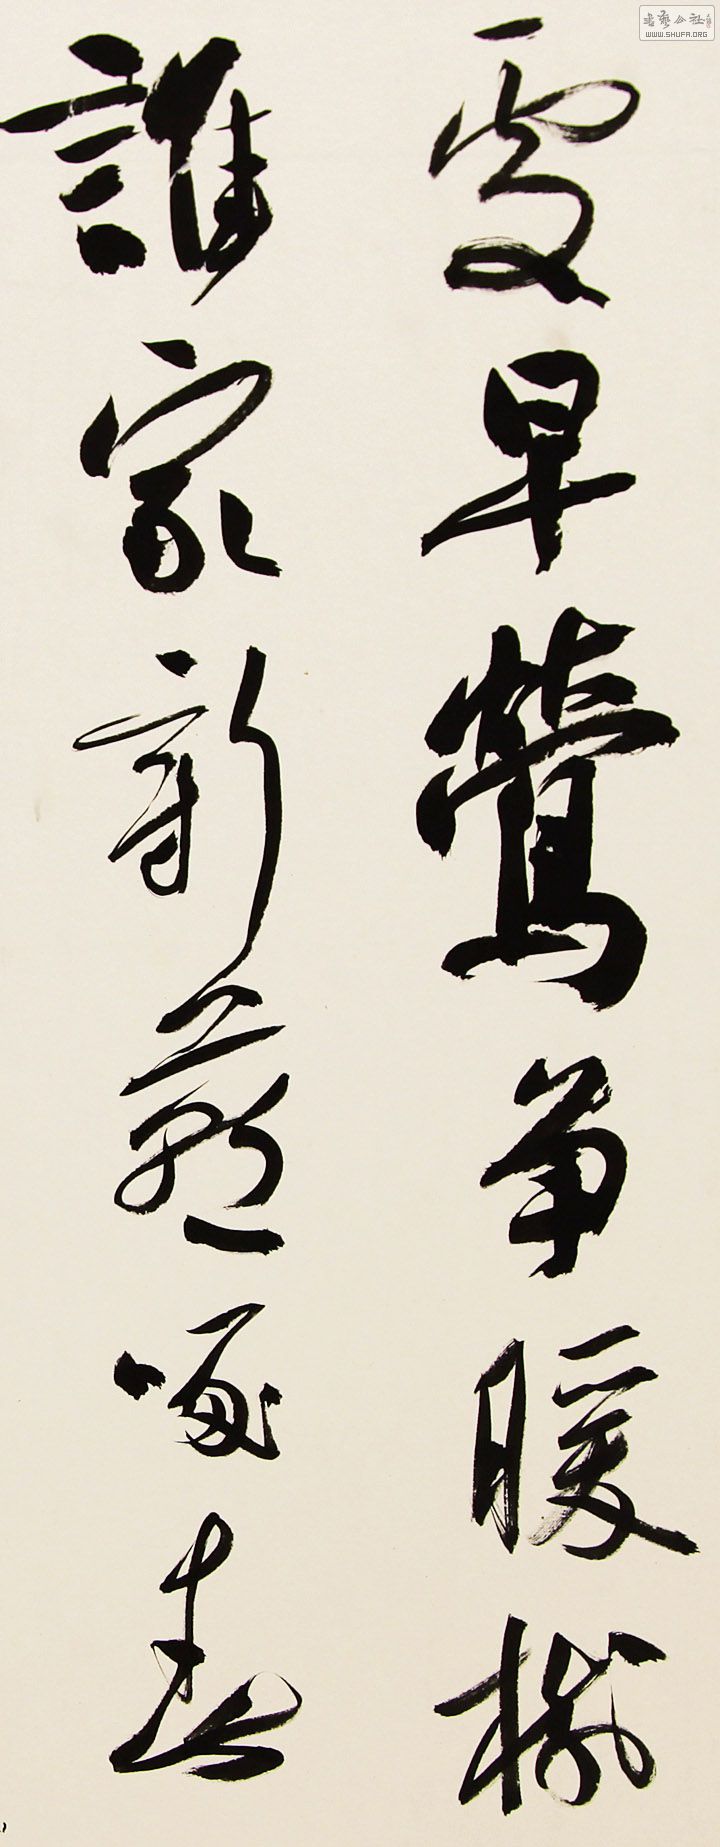 處早鶯争暖樹
誰家新燕啄春
書藝公社
WWW.SHUFA.ORG